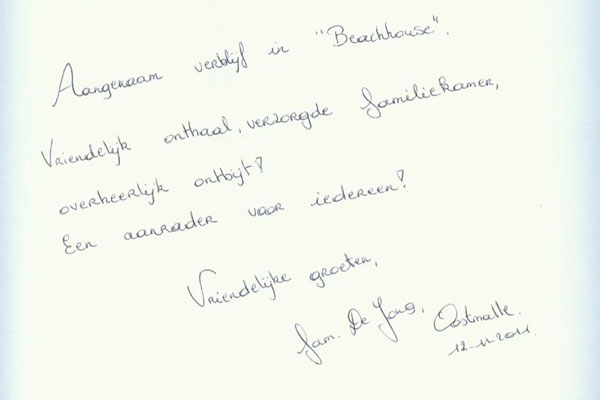 Aangenaam verblijf in "Beachhouse".
Vriendelijk onthaal, verzorgde familiekamer,
overheerlijk ontbijt!
Een aanrader voor iedereen!
Vriendelijke groeten,
fam. De Jong, Oostmalle.
12-11-2011.